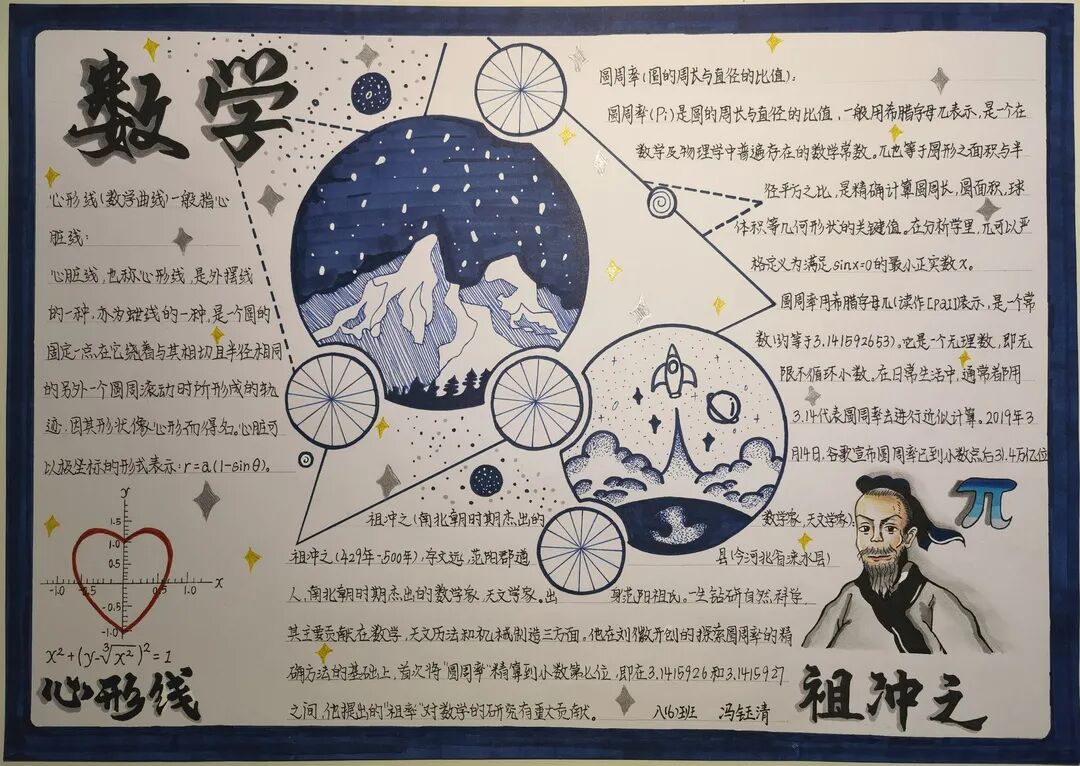 数学
心形线(数学曲线)一般指心
脏线:
心脏线,也称心形线,是外摆线
的一种,亦为蚶线的一种,是一个圆的
固定一点在它绕着与其相切且半径相同
的另外一个圆周滚动时所形成的轨
迹,因其形状像心形而得名。心脏可
以极坐标的形式表示:r=a(1-sinθ)。
y
1.5
1.0
0.5
-1.0 -0.5 0 0.5 1.0 x
-0.5
-1.0
x²+(y-∛x²)²=1
心形线
圆周率(圆的周长与直径的比值):
圆周率(Pi)是圆的周长与直径的比值,一般用希腊字母π表示,是一个在
数学及物理学中普遍存在的数学常数。π也等于圆形之面积与半
径平方之比,是精确计算圆周长,圆面积,球
体积等几何形状的关键值。在分析学里,π可以严
格定义为满足sinx=0的最小正实数x。
圆周率用希腊字母π(读作[pai]表示,是一个常
数(约等于3.141592653)。它是一个无理数,即无
限不循环小数。在日常生活中,通常都用
3.14代表圆周率去进行近似计算。2019年3
月14日,谷歌宣布圆周率已到小数点后31.4万亿位
π
祖冲之(南北朝时期杰出的数学家,天文学家):
祖冲之(429年-500年),字文远,范阳郡遒县(今河北省涞水县)
人,南北朝时期杰出的数学家,天文学家。出身范阳祖氏。一生钻研自然科学,
其主要贡献在数学,天文历法和机械制造三方面。他在刘徽开创的探索圆周率的精
确方法的基础上,首次将"圆周率"精算到小数第七位,即在3.1415926和3.1415927
之间,他提出的"祖率"对数学的研究有重大贡献。 八(6)班 冯钰清
祖冲之